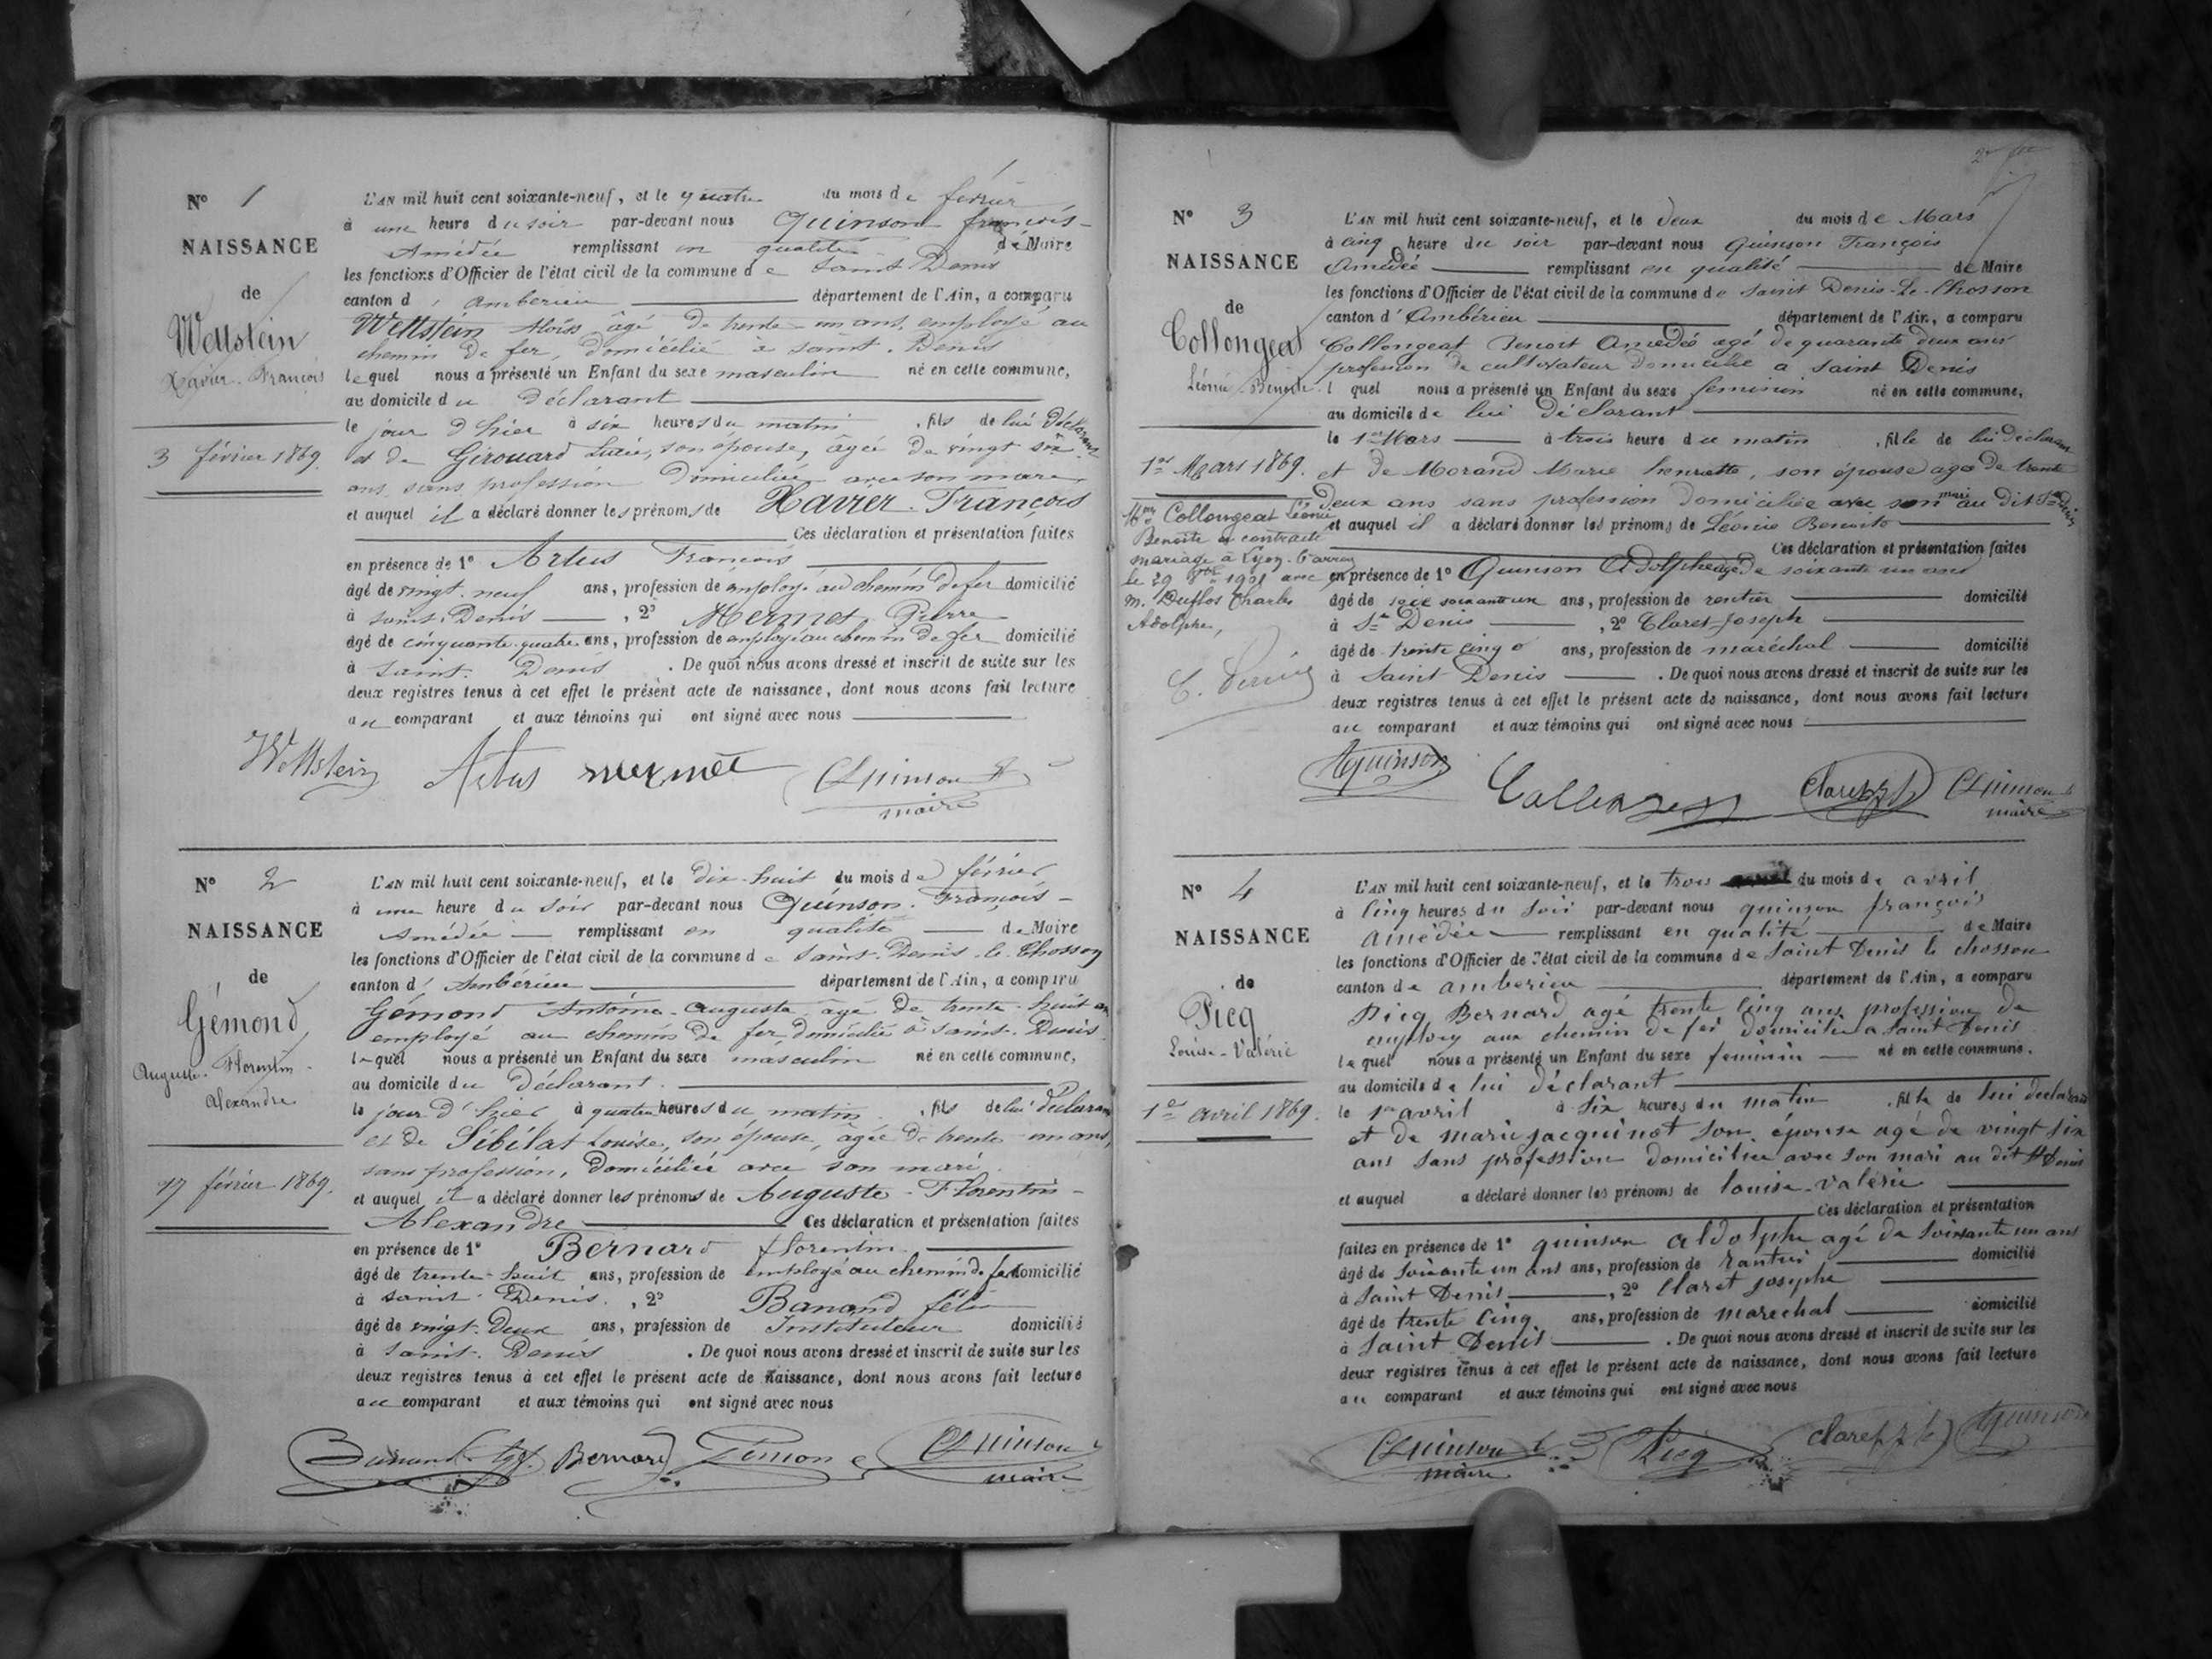 N° 1
NAISSANCE
de
Wettstein
Xavier. François
3 février 1869.
L'AN mil huit cent soixante-neuf, et le quatre du mois de février
à une heure du soir par-devant nous Quinson françois-
Amédée remplissant en qualité de Maire
les fonctions d'Officier de l'état civil de la commune de Saint Denis
canton d' Amberieu département de l'Ain, a comparu
Wettstein Aloïss âgé de trente-un ans, employé au
chemin de fer, domicilié à saint. Denis
lequel nous a présenté un Enfant du sexe masculin né en cette commune,
au domicile du déclarant
le jour d'hier à six heures du matin, fils de lui déclarant
et de Girouard Lucie, son épouse, âgée de vingt six
ans, sans profession domiciliée avec son mari
et auquel il a déclaré donner les prénoms de Xavier. François
Ces déclaration et présentation faites
en présence de 1° Artus François
âgé de vingt-neuf ans, profession de employé au chemin de fer domicilié
à saint. Denis, 2° Mermet Pierre
âgé de cinquante-quatre ans, profession de employé au chemin de fer domicilié
à saint. Denis. De quoi nous avons dressé et inscrit de suite sur les
deux registres tenus à cet effet le présent acte de naissance, dont nous avons fait lecture
au comparant et aux témoins qui ont signé avec nous
Wettstein Artus mermet Quinson A
maire
N° 2
NAISSANCE
de
Gémond
Auguste. Florentin.
Alexandre
17 février 1869.
L'AN mil huit cent soixante-neuf, et le dix-huit du mois de février
à une heure du soir par-devant nous Quinson. François-
Amédée remplissant en qualité de Maire
les fonctions d'Officier de l'état civil de la commune de Saint-Denis-le-Chosson
canton d' Ambérieu département de l'Ain, a comparu
Gémond Antoine-Auguste âgé de trente-huit ans
employé au chemin de fer, domicilié à saint-Denis
lequel nous a présenté un Enfant du sexe masculin né en cette commune,
au domicile du déclarant.
le jour d'hier à quatre heures du matin, fils de lui déclarant
et de Sibélat Louise, son épouse, âgée de trente-un ans,
sans profession, domiciliée avec son mari.
et auquel il a déclaré donner les prénoms de Auguste-Florentin-
Alexandre Ces déclaration et présentation faites
en présence de 1° Bernard florentin
âgé de trente-huit ans, profession de employé au chemin de fer domicilié
à saint. Denis., 2° Banand félix
âgé de vingt-deux ans, profession de Instituteur domicilié
à saint. Denis. De quoi nous avons dressé et inscrit de suite sur les
deux registres tenus à cet effet le présent acte de naissance, dont nous avons fait lecture
au comparant et aux témoins qui ont signé avec nous
Bernard Gémond Quinson
maire
N° 3
NAISSANCE
de
Collongeat
Léonie Benoite
1er Mars 1869.
Collongeat Léonie
Benoite a contracté
mariage à Lyon
le 29 1901 avec
M. Duflos Charles
Adolphe,
L'AN mil huit cent soixante-neuf, et le deux du mois de Mars
à cinq heure du soir par-devant nous Quinson François
Amédée remplissant en qualité de Maire
les fonctions d'Officier de l'état civil de la commune de Saint Denis-Le-Chosson
canton d' Ambérieu département de l'Ain, a comparu
Collongeat Benoit Amédée agé de quarante deux ans
profession de cultivateur domicilié a Saint Denis
l quel nous a présenté un Enfant du sexe féminin né en cette commune,
au domicile de lui déclarant
le 1er Mars à trois heure du matin, fille de lui déclarant
et de Morand Marie henriette, son épouse agée de trente
deux ans sans profession domiciliée avec son mari au dit St Denis
et auquel il a déclaré donner les prénoms de Léonie Benoite
Ces déclaration et présentation faites
en présence de 1° Quinson Adolphe agé de soixante un ans
âgé de soixante un ans, profession de rentier domicilié
à St Denis, 2° Claret Joseph
âgé de trente cinq ans, profession de maréchal domicilié
à Saint Denis. De quoi nous avons dressé et inscrit de suite sur les
deux registres tenus à cet effet le présent acte de naissance, dont nous avons fait lecture
au comparant et aux témoins qui ont signé avec nous
AQuinson Collongeat Claret Quinson
maire
N° 4
NAISSANCE
de
Picq
Louise-Valérie
1er avril 1869.
L'AN mil huit cent soixante-neuf, et le trois du mois de avril
à cinq heures du soir par-devant nous quinson françois
amédée remplissant en qualité de Maire
les fonctions d'Officier de l'état civil de la commune de Saint Denis le chosson
canton de amberieu département de l'Ain, a comparu
Picq Bernard agé trente cinq ans profession de
employ aux chemin de fer domicilié a Saint Denis
lequel nous a présenté un Enfant du sexe feminin né en cette commune.
au domicile de lui déclarant
le 1er avril à six heures du matin, fille de lui déclarant
et de marie jacquinot son épouse agé de vingt six
ans sans profession domiciliée avec son mari au dit St Denis
et auquel a déclaré donner les prénoms de louise-valérie
Ces déclaration et présentation
faites en présence de 1° quinson aldolphe agé de soixante un ans
âgé de soixante un ans ans, profession de rantier domicilié
à Saint Denis, 2° Claret Josephe
âgé de trente cinq ans, profession de marechal domicilié
à Saint Denis. De quoi nous avons dressé et inscrit de suite sur les
deux registres tenus à cet effet le présent acte de naissance, dont nous avons fait lecture
au comparant et aux témoins qui ont signé avec nous
Quinson Picq Claret AQuinson
maire